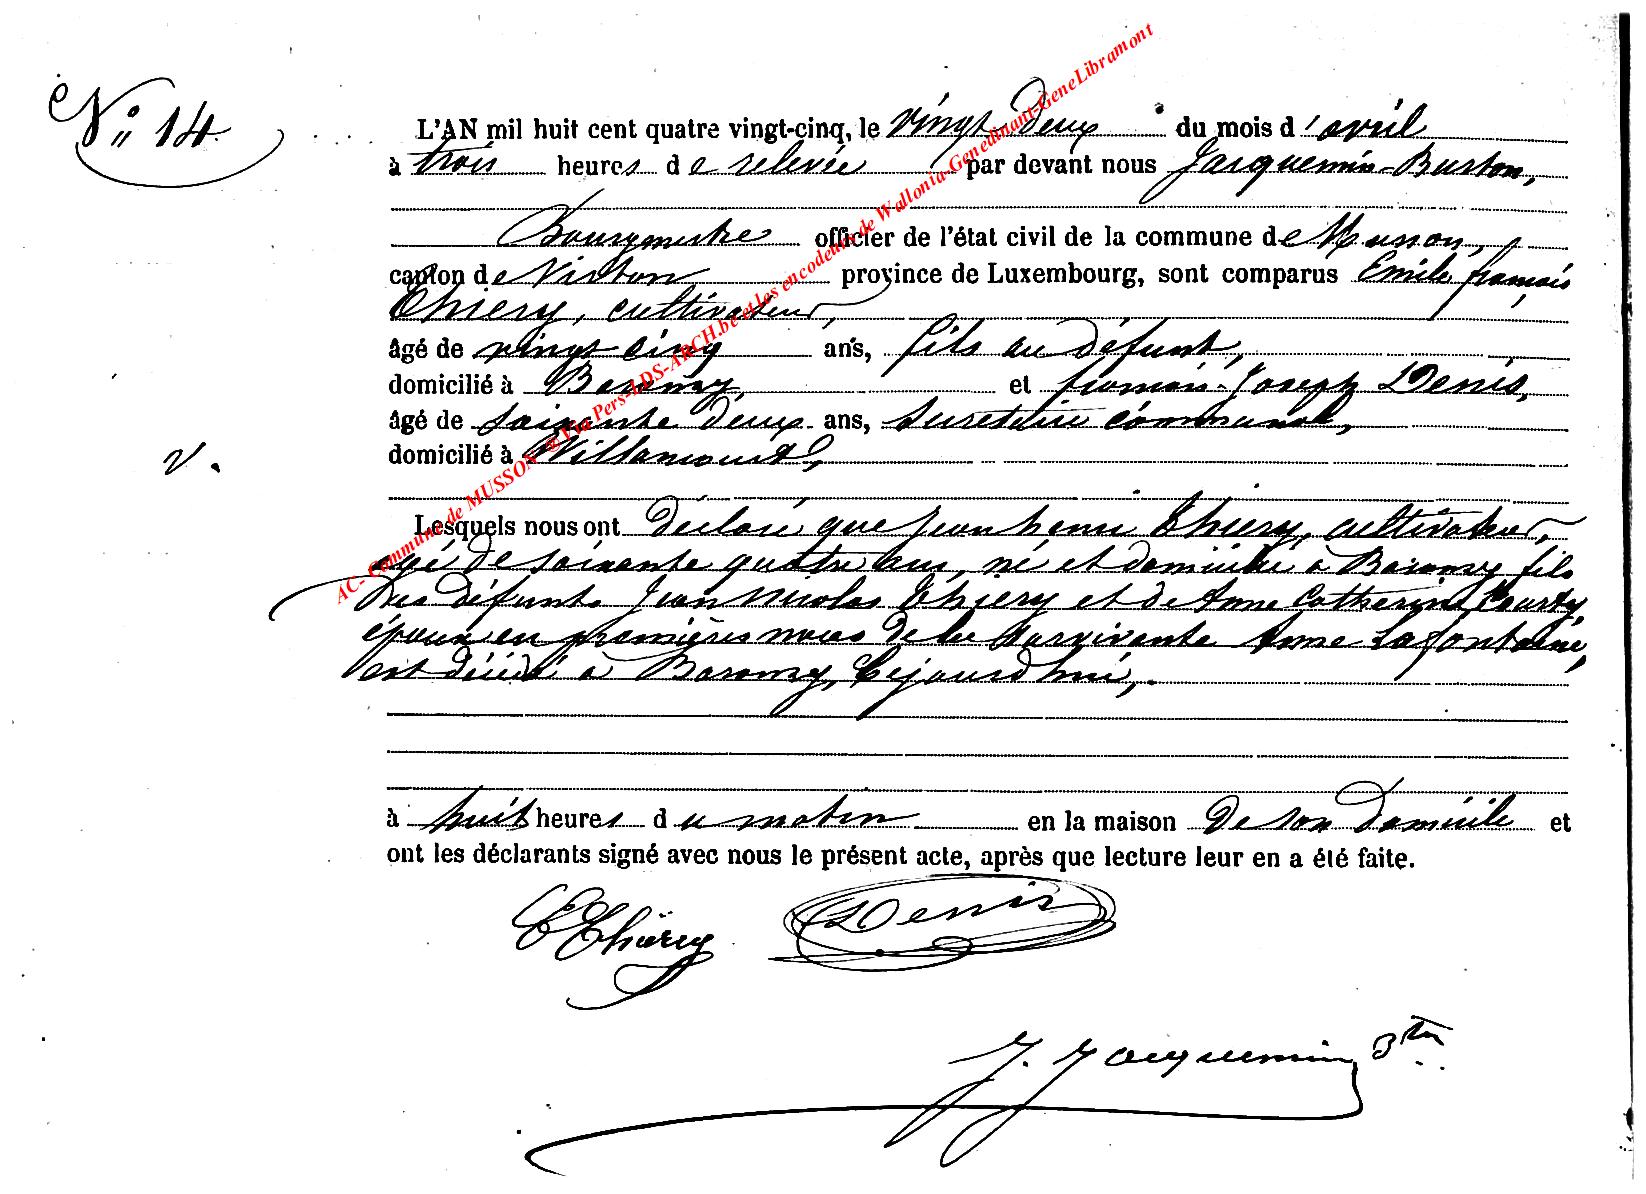 N° 14
L'AN mil huit cent quatre vingt-cinq, le vingt-deux du mois d'avril
à trois heures de relevée par devant nous Jacquemin-Burton,
Bourgmestre officier de l'état civil de la commune de Musson,
canton de Virton province de Luxembourg, sont comparus Emile françois
Thiery, cultivateur,
âgé de vingt cinq ans, fils au défunt,
domicilié à Baranzy, et françois-Joseph Denis,
âgé de soixante deux ans, secrétaire communal,
domicilié à Willancourt,
v.
Lesquels nous ont déclaré que Jean henri Thiery, cultivateur,
agé de soixante quatre ans, né et domicilié à Baranzy, fils
des défunts Jean Nicolas Thiery et de Anne Catherine Courty,
époux en premières noces de la survivante Anne Lafontaine,
est décédé à Baranzy, cejourd'hui,
à huit heures du matin en la maison de son domicile et
ont les déclarants signé avec nous le présent acte, après que lecture leur en a été faite.
E Thiery Denis
J. Jacquemin Btn
AC- Commune de MUSSON © Via Pers-LDS-ARCH.be et les encodeurs de Wallonia-Genedinant-GeneLibramont